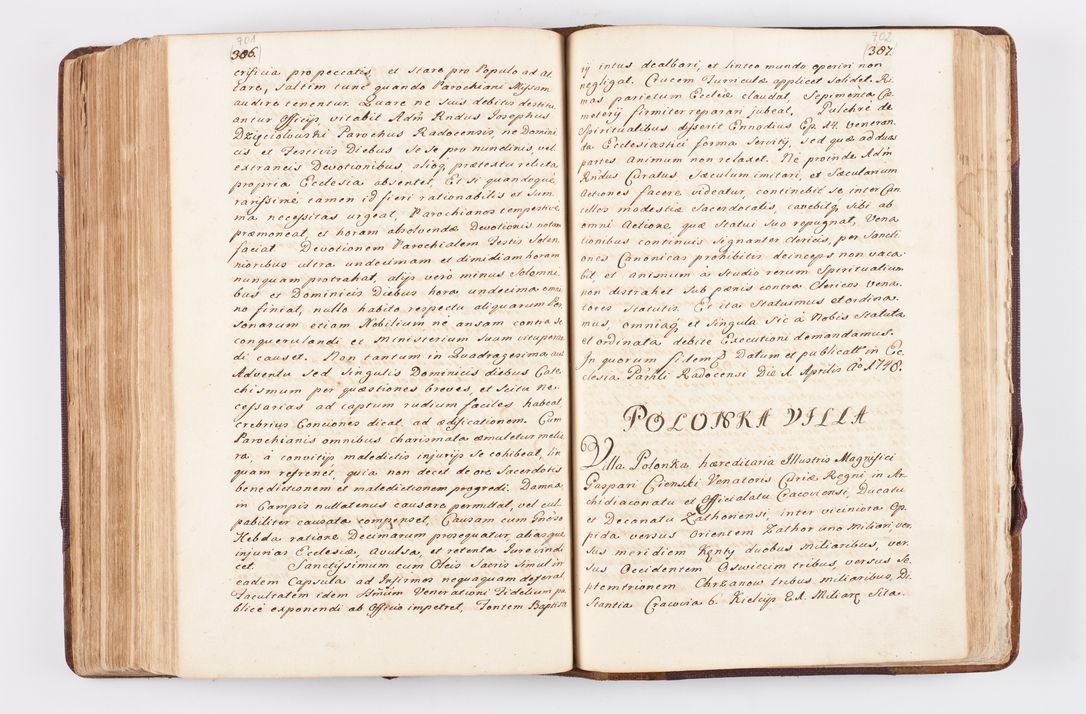 701
386.
crificia pro peccatis, et staro pro Populo ad al,
taro, saltim tunc quando Parochiani Missam
audire tenentur. Quare ne suis debitis destitu,
antur Officijs, vitabit Adm Rndus Josephus
Dzięciolowski Parochus Radocensis, ne Domini
cis et Festivis Diebus se se pro nundinis, vel
extraneis Devotionibus alioq praetextu relicta
propria Ecclesia absentet, Et si quandoque
rarissime tamen id fieri rationabilis et sum,
ma necessitas urgeat, Parochianos tempestive
praemoneat, et horam absolvenda Devotionis notam
faciat Devotionem Parochialem Festis Solen
nioribus ultra undecimam et dimidiam horam
nunquam protrahat, alijs vero minus Solemni
bus et Dominicis Diebus hora undecima omni
no finiat, nullo habito respectu aliquarum Per
sonarum etiam Nobilium ne ansam contra se
conquerulandi et Ministerium suum vituperan
di causet. Non tantum in Quadragesima aut
Adventu sed singulis Dominicis diebus Cate
chismum per quaestiones breves, et scitu ne,
cessarias ad captum rudium faciles habeat
crebrius Conciones dicat, ad aedificationem. Cum
Parochianis omnibus charismata aemuletur melio
ra, à convitijs maledictis injurijs se cohibeat, lin
guam refrenet, quia non decet de ore Sacerdotis
benedictionem et maledictionem progredi. Damna
in Campis nullatenus causare permittat, vel cul
pabiliter causata compenset, Causam cum Gnoso
Hebda ratione Decimarum prosequatur, aliasque
injurias Ecclesiae, avulsa, et retenta Jure vindi
cet. Sanctissimum cum Oleis Sacris simul in
eadem Capsula ad Infirmos nequaquam deferat,
Facultatem idem Ssmum Venerationi Fidelium pu
blice exponendi ab Officio impetret, Fontem Baptis
702
387.
ij intus dealbari, et linteo mundo operiri non
negligat. Crucem Turriculae applicet solidet. Ri,
mas parietum Eccliae claudat, Sepimenta Coe
meterij firmiter reparari jubeat. Pulchre de
Spiritualibus disserit Ennodius Ep. 14. veneran,
da Ecclesiastici forma servitij, sed quae ad duas
partes animum non relaxet. Ne proinde Adm
Rndus Curatus saeculum imitari, et saecularium
Actiones facere videatur, continebit se inter Can
cellos modestiae Sacerdotalis, cavebitq sibi ab
omni Actione, quae Statui suo repugnat, Vena
tionibus continuis signanter clericis, per Sancti
ones Canonicas prohibitis deinceps non vaca
bit, et animum à studio rerum Spiritualium
non distrahet sub paenis contra Clericos Vena,
tores Statutis. Et ita Statuimus et ordina,
mus, omniaq et singula sic à Nobis Statuta
et ordinata debitae Executioni demandamus.
In quorum fidem Datum et publicatt in Ec
clesia Parhli Radocensi Die 1. Aprilis Ao 1748.
POLONKA VILLA
Villa Polonka haereditaria Illustris Magnifici
Gaspari Cienski Venatoris Curiae Regni, in Ar
chidiaconatu et Officialatu Cracoviensi, Ducatu
et Decanatu Zathoriensi, inter viciniora Op
pida versus Orientem Zathor uno Miliari, ver,
sus meridiem Kęnty duobus Miliaribus, ver,
sus Occidentem Oswiecim tribus, versus Se
ptemtrionem Chrzanow tribus miliaribus, Di
stantia Cracovia 6. Kielcijs 21. Miliarz Sita.